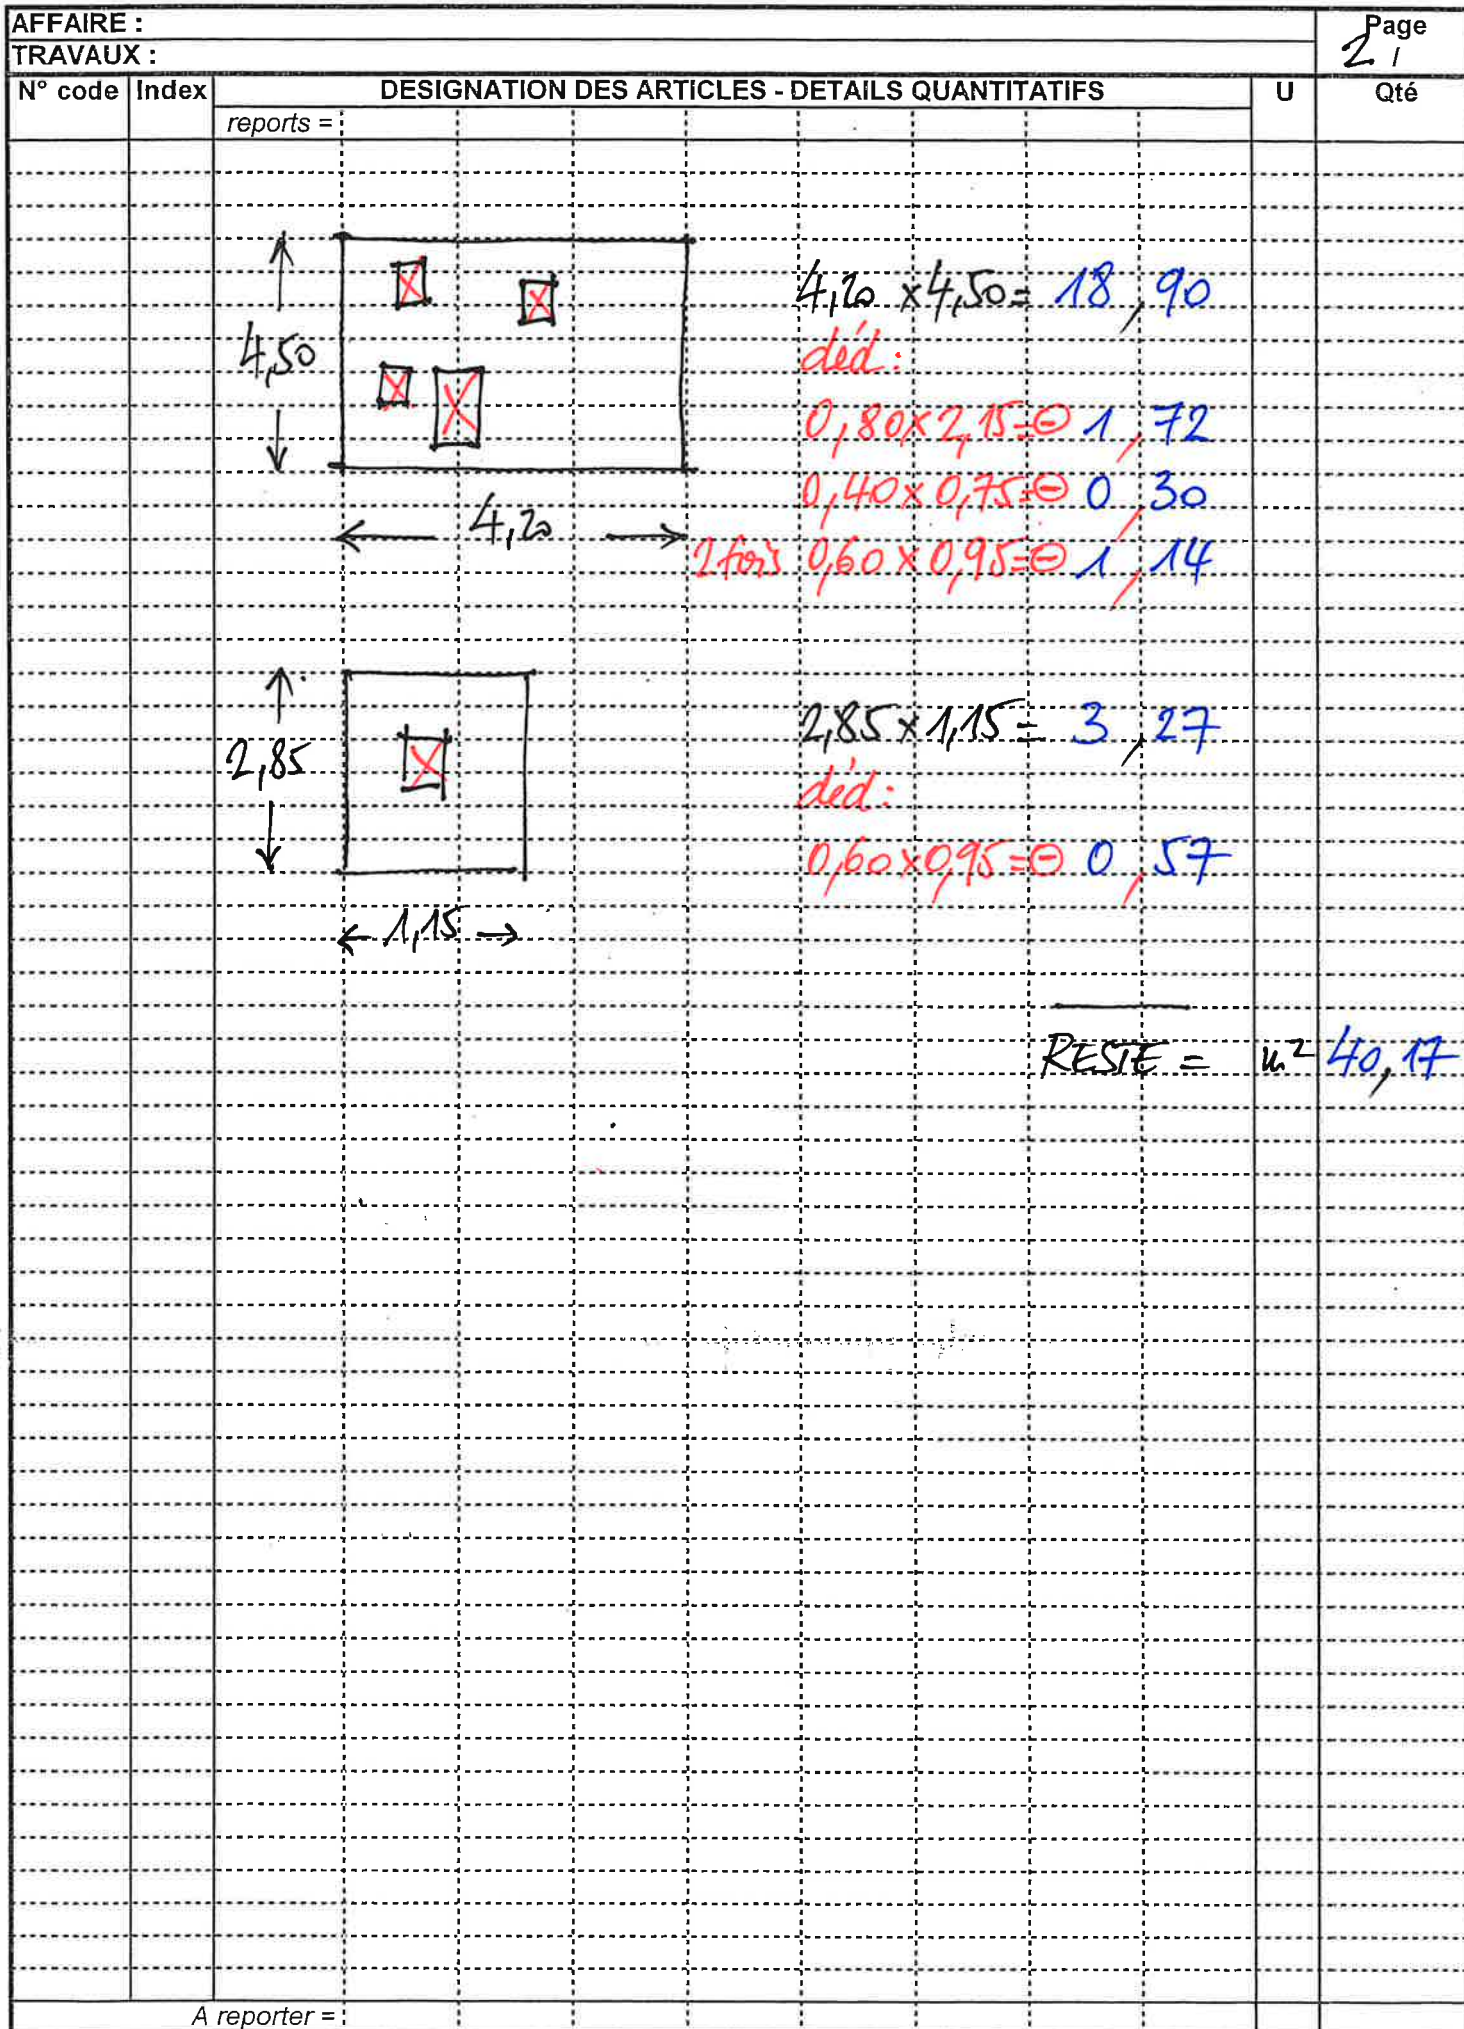 AFFAIRE :
Page
TRAVAUX :
2 /
N° code Index DESIGNATION DES ARTICLES - DETAILS QUANTITATIFS U Qté
reports =
4,20 x 4,50 = 18,90
4,50
déd :
0,80 x 2,15 = ⊖ 1,72
0,40 x 0,75 = ⊖ 0,30
4,20
2 fois 0,60 x 0,95 = ⊖ 1,14
2,85 x 1,15 = 3,27
2,85
déd :
0,60 x 0,95 = ⊖ 0,57
1,15
RESTE = m² 40,17
A reporter =